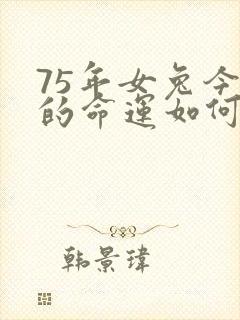 75年女兔今
的命运如何
韩景瑋